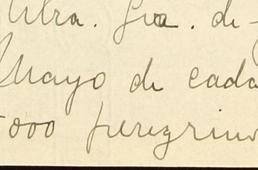 Ntra. Sra. de
Mayo de cada
000 peregrino